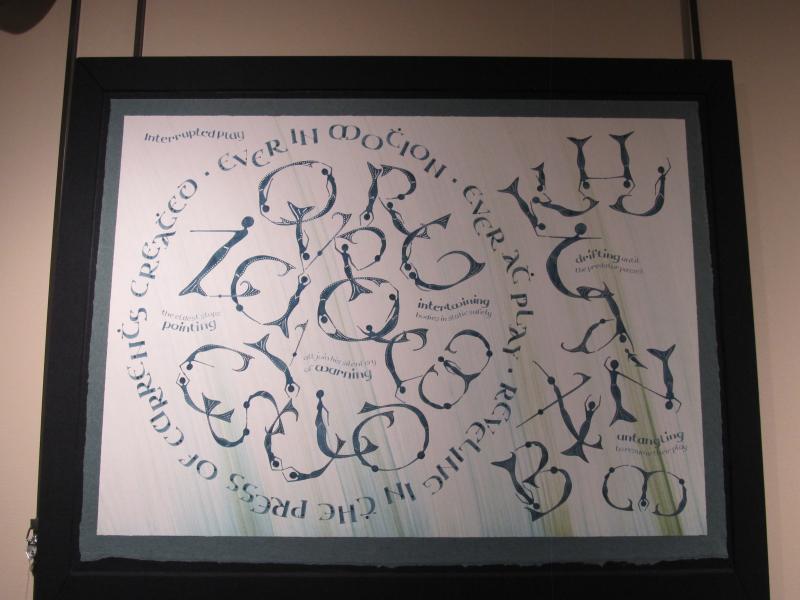 Interrupted play
EVER IN MOTION · EVER AT PLAY · REVELING IN THE PRESS OF CURRENTS CREATED ·
the eldest stops
pointing
intertwining
bodies in static safety
all join her silent cry
of warning
drifting until
the predator passes
untangling
to resume their play